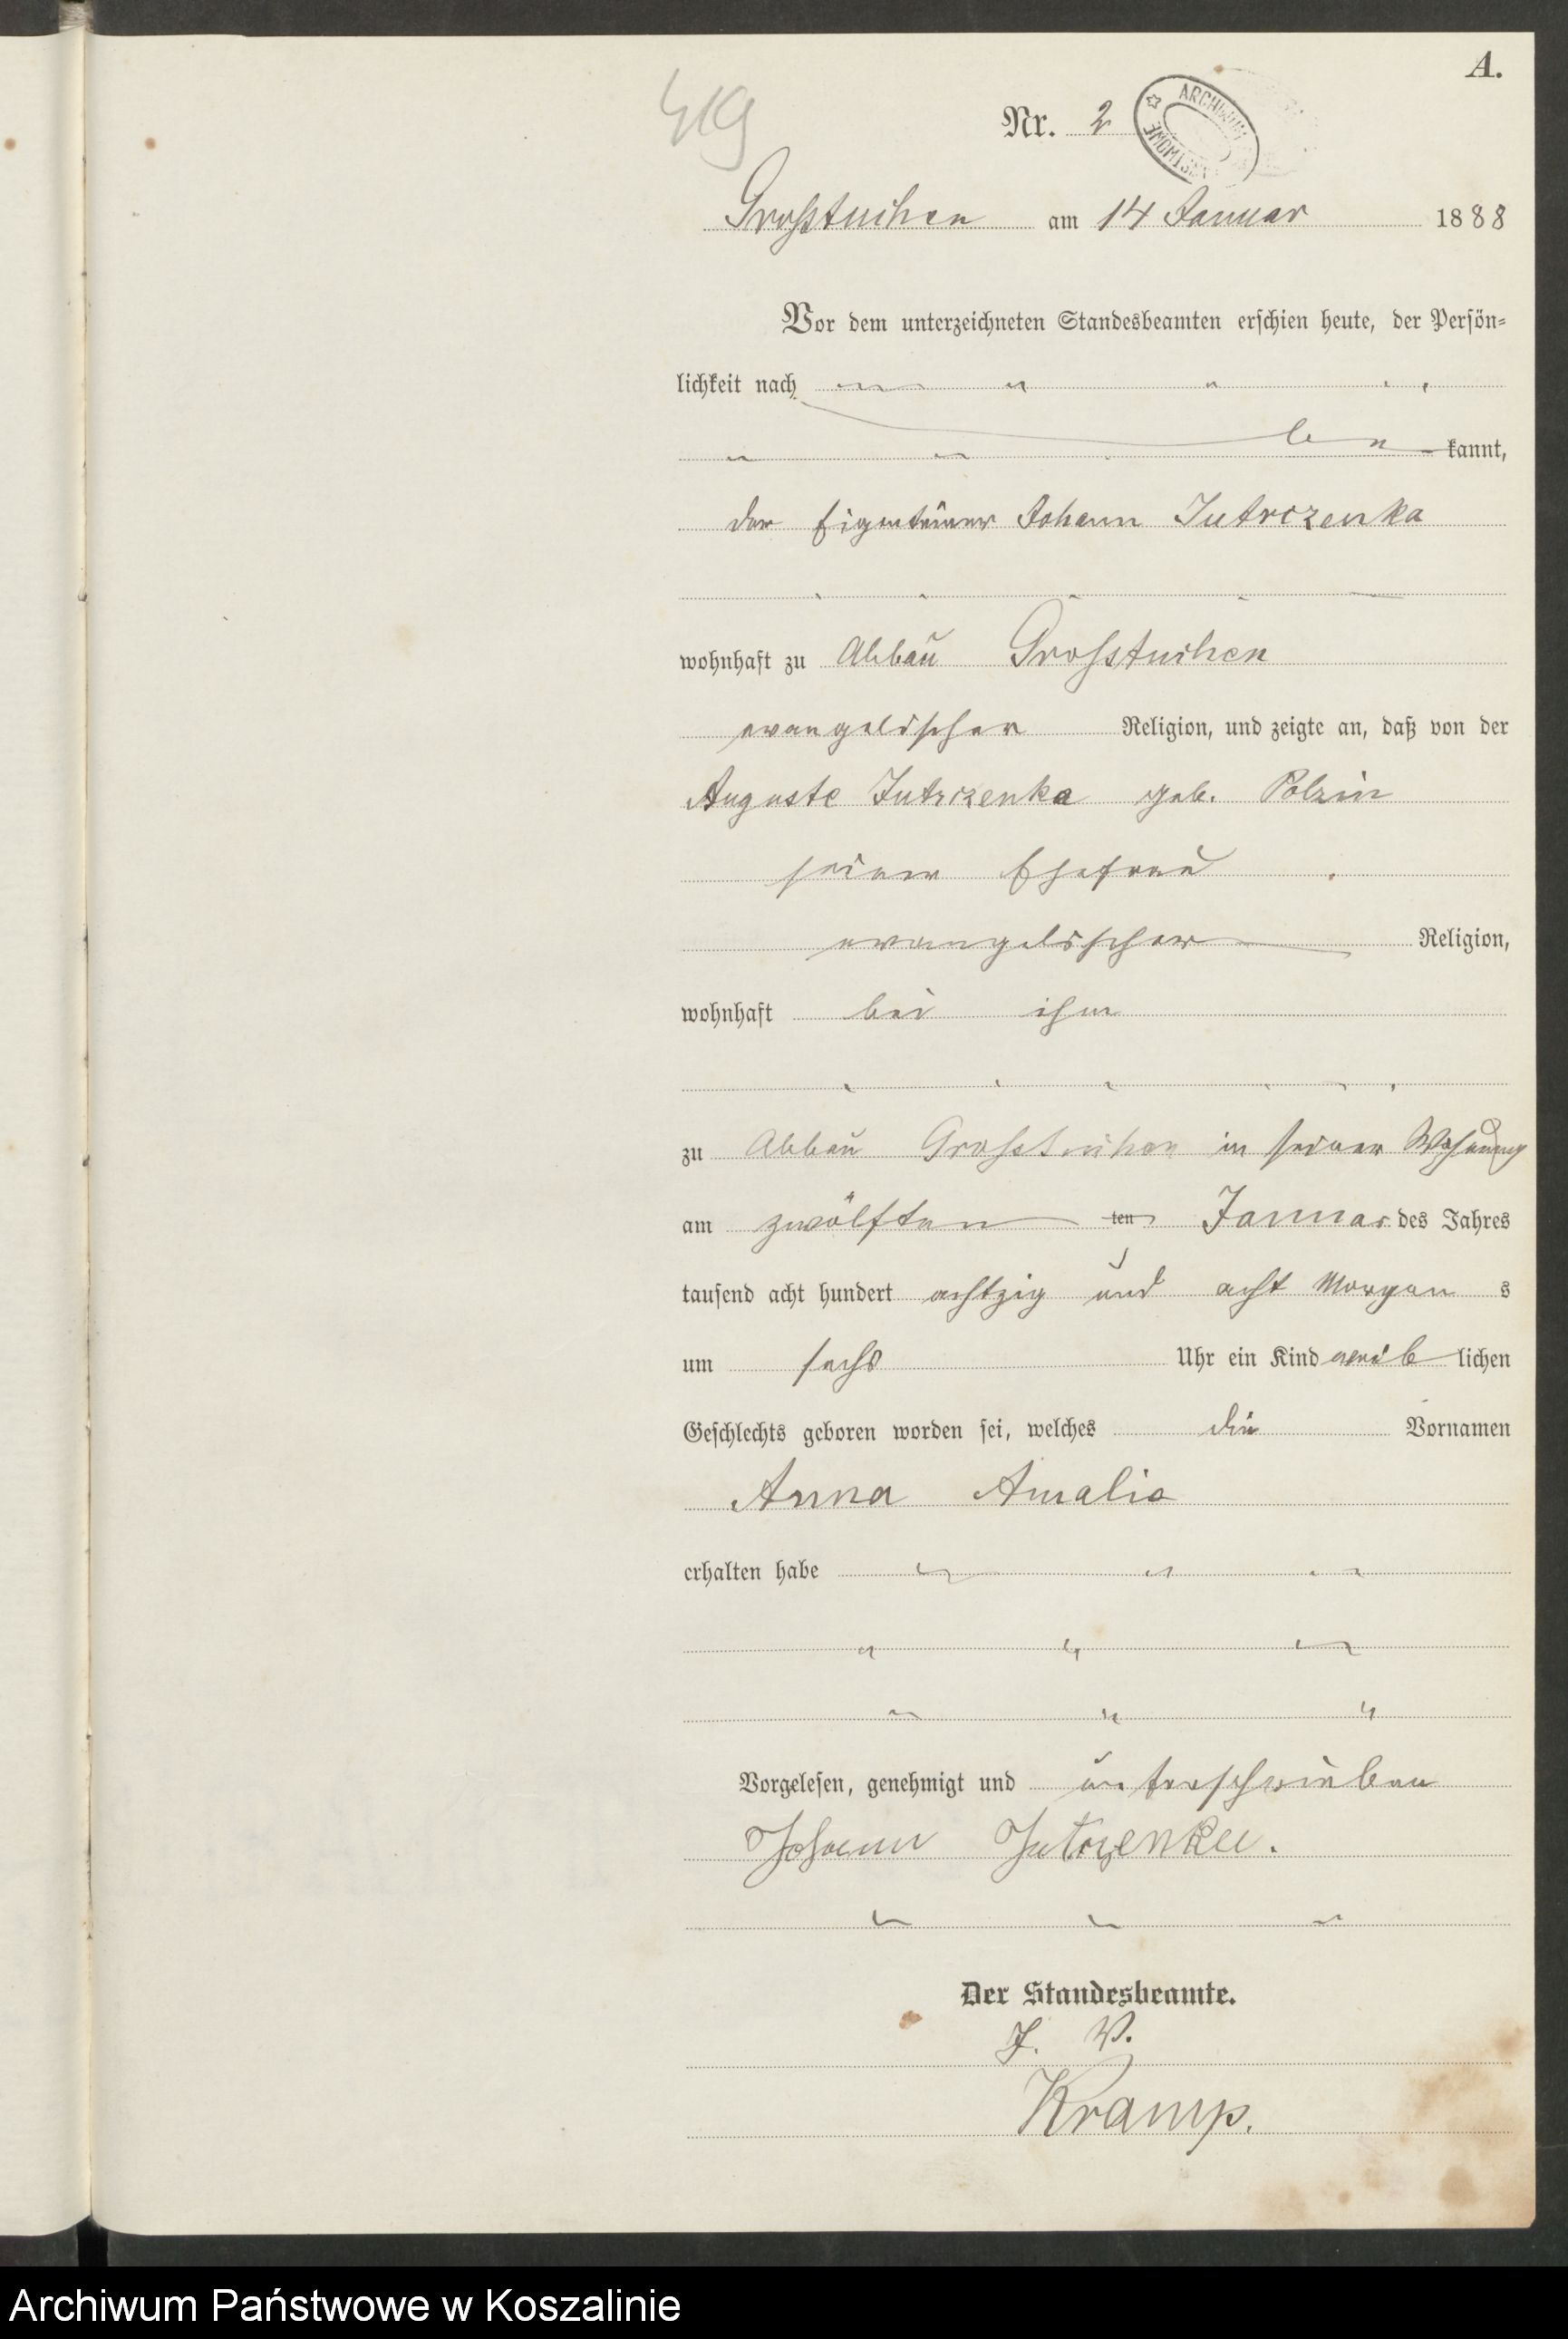 A.
Nr. 2
ARCHIWUM
Großtuchen am 14 Januar 1888
Vor dem unterzeichneten Standesbeamten erschien heute, der Persön-
lichkeit nach
be kannt,
der Eigentümer Johann Jutrczenka
wohnhaft zu Abbau Großtuchen
evangelischer Religion, und zeigte an, daß von der
Auguste Jutrczenka geb. Polzin
seiner Ehefrau
evangelischer Religion,
wohnhaft bei ihm
zu Abbau Großtuchen in seiner Wohnung
am zwölften ten Januar des Jahres
tausend acht hundert achtzig und acht Morgen s
um sechs Uhr ein Kind weib lichen
Geschlechts geboren worden sei, welches die Vornamen
Anna Amalia
erhalten habe
Vorgelesen, genehmigt und unterschrieben
Johann Jutrzenka.
Der Standesbeamte.
J. V.
Kramp.
Archiwum Państwowe w Koszalinie